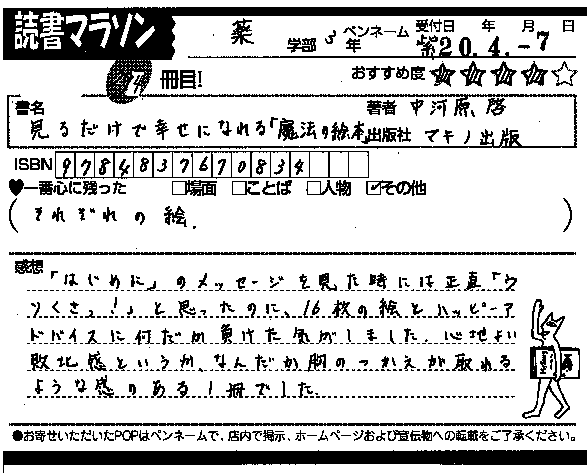 読書マラソン
薬 学部 3年 ペンネーム 紫
受付日 年 月 日
20.4.-7
24 冊目!
おすすめ度 ★★★★☆
書名 見るだけで幸せになれる「魔法の絵本」
著者 中河原 啓
出版社 マキノ出版
ISBN 9784837670834
♥一番心に残った □場面 □ことば □人物 ☑その他
(それぞれの絵.)
感想
「はじめに」のメッセージを見た時には正直「ウ
ソくさっ!」と思ったのに、16枚の絵とハッピーア
ドバイスに何だか負けた気がしました。心地よい
敗北感というか、なんだか胸のつかえが取れる
ような感のある1冊でした.
●お寄せいただいたPOPはペンネームで、店内で掲示、ホームページおよび宣伝物への転載をご了承ください。